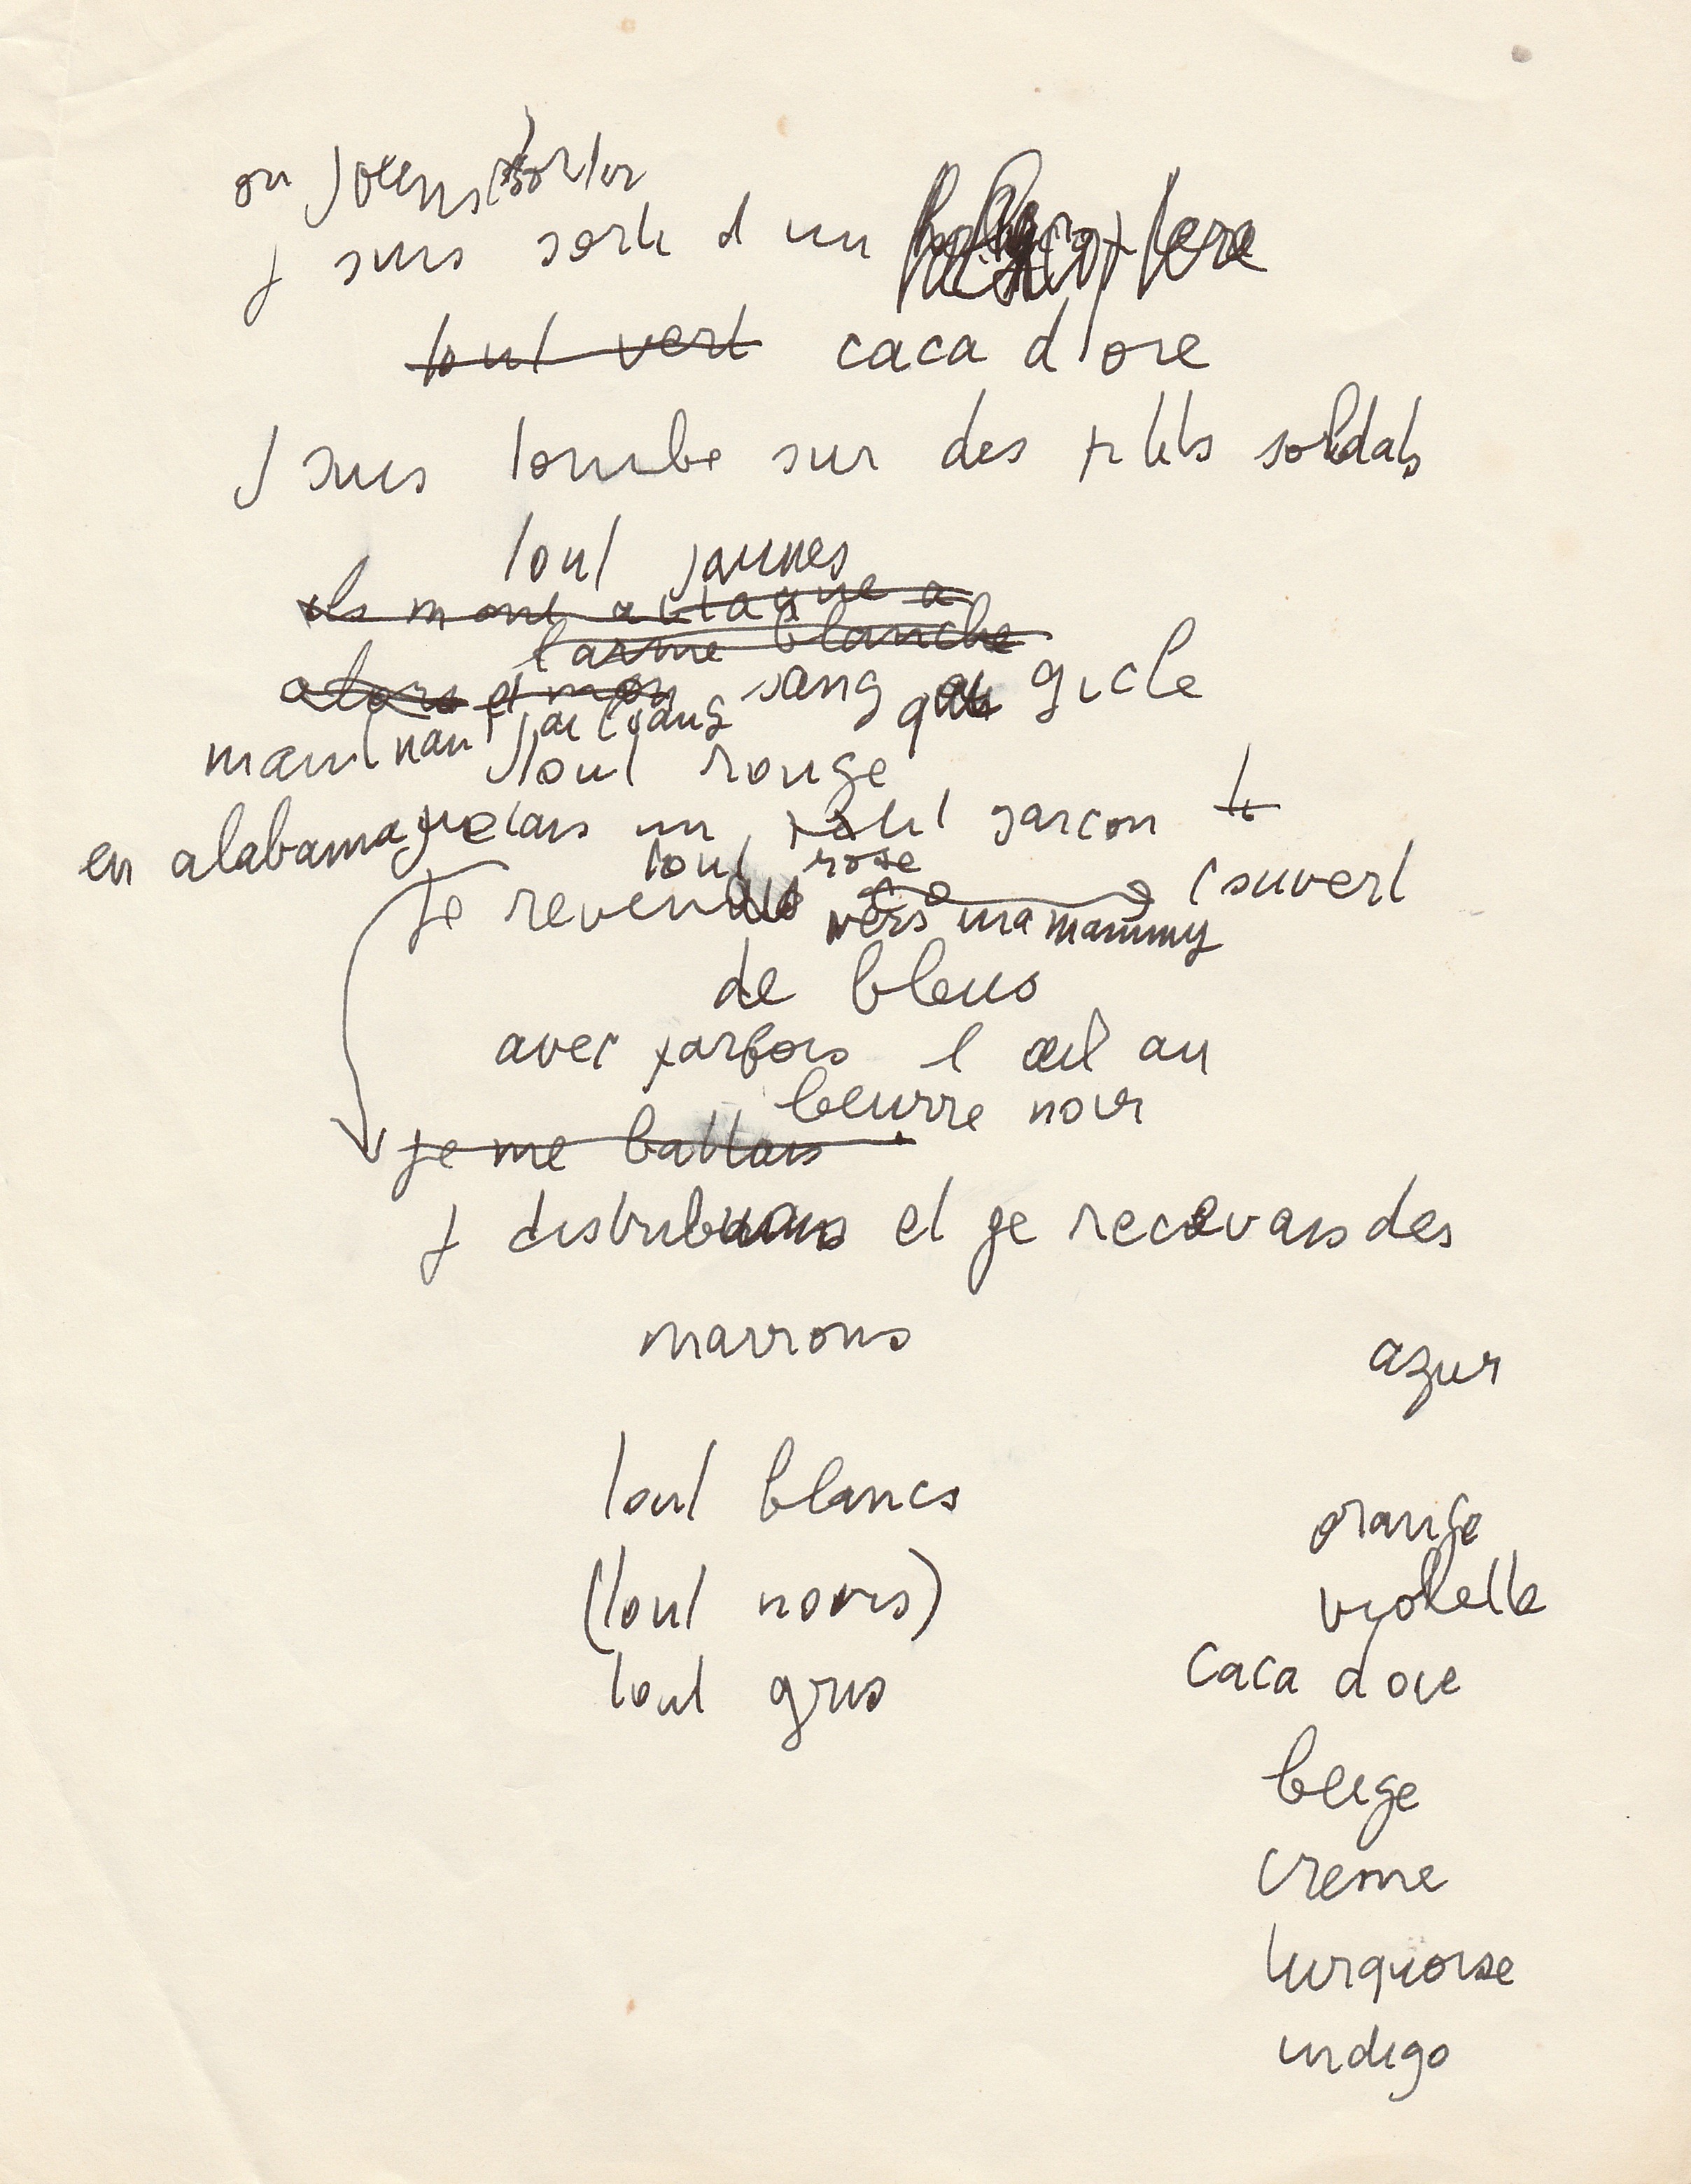 on
j suis sorti d un helicoptere
tout vert caca d'oie
j suis tombe sur des ptits soldats
tout jaunes
ils m ont attaque a
l arme blanche
alors et mon sang qui gicle
maint'nant j'ai l'sang
tout rouge
en alabama j'etais un ptit garcon
tout rose
Je revenais couvert
vers ma mammy
de bleus
avec parfois l œil au
beurre noir
je me battais
j distribuais et je recevais des
marrons
azur
tout blancs
orange
(tout noirs)
violette
tout gris
caca d oie
beige
creme
turquoise
indigo